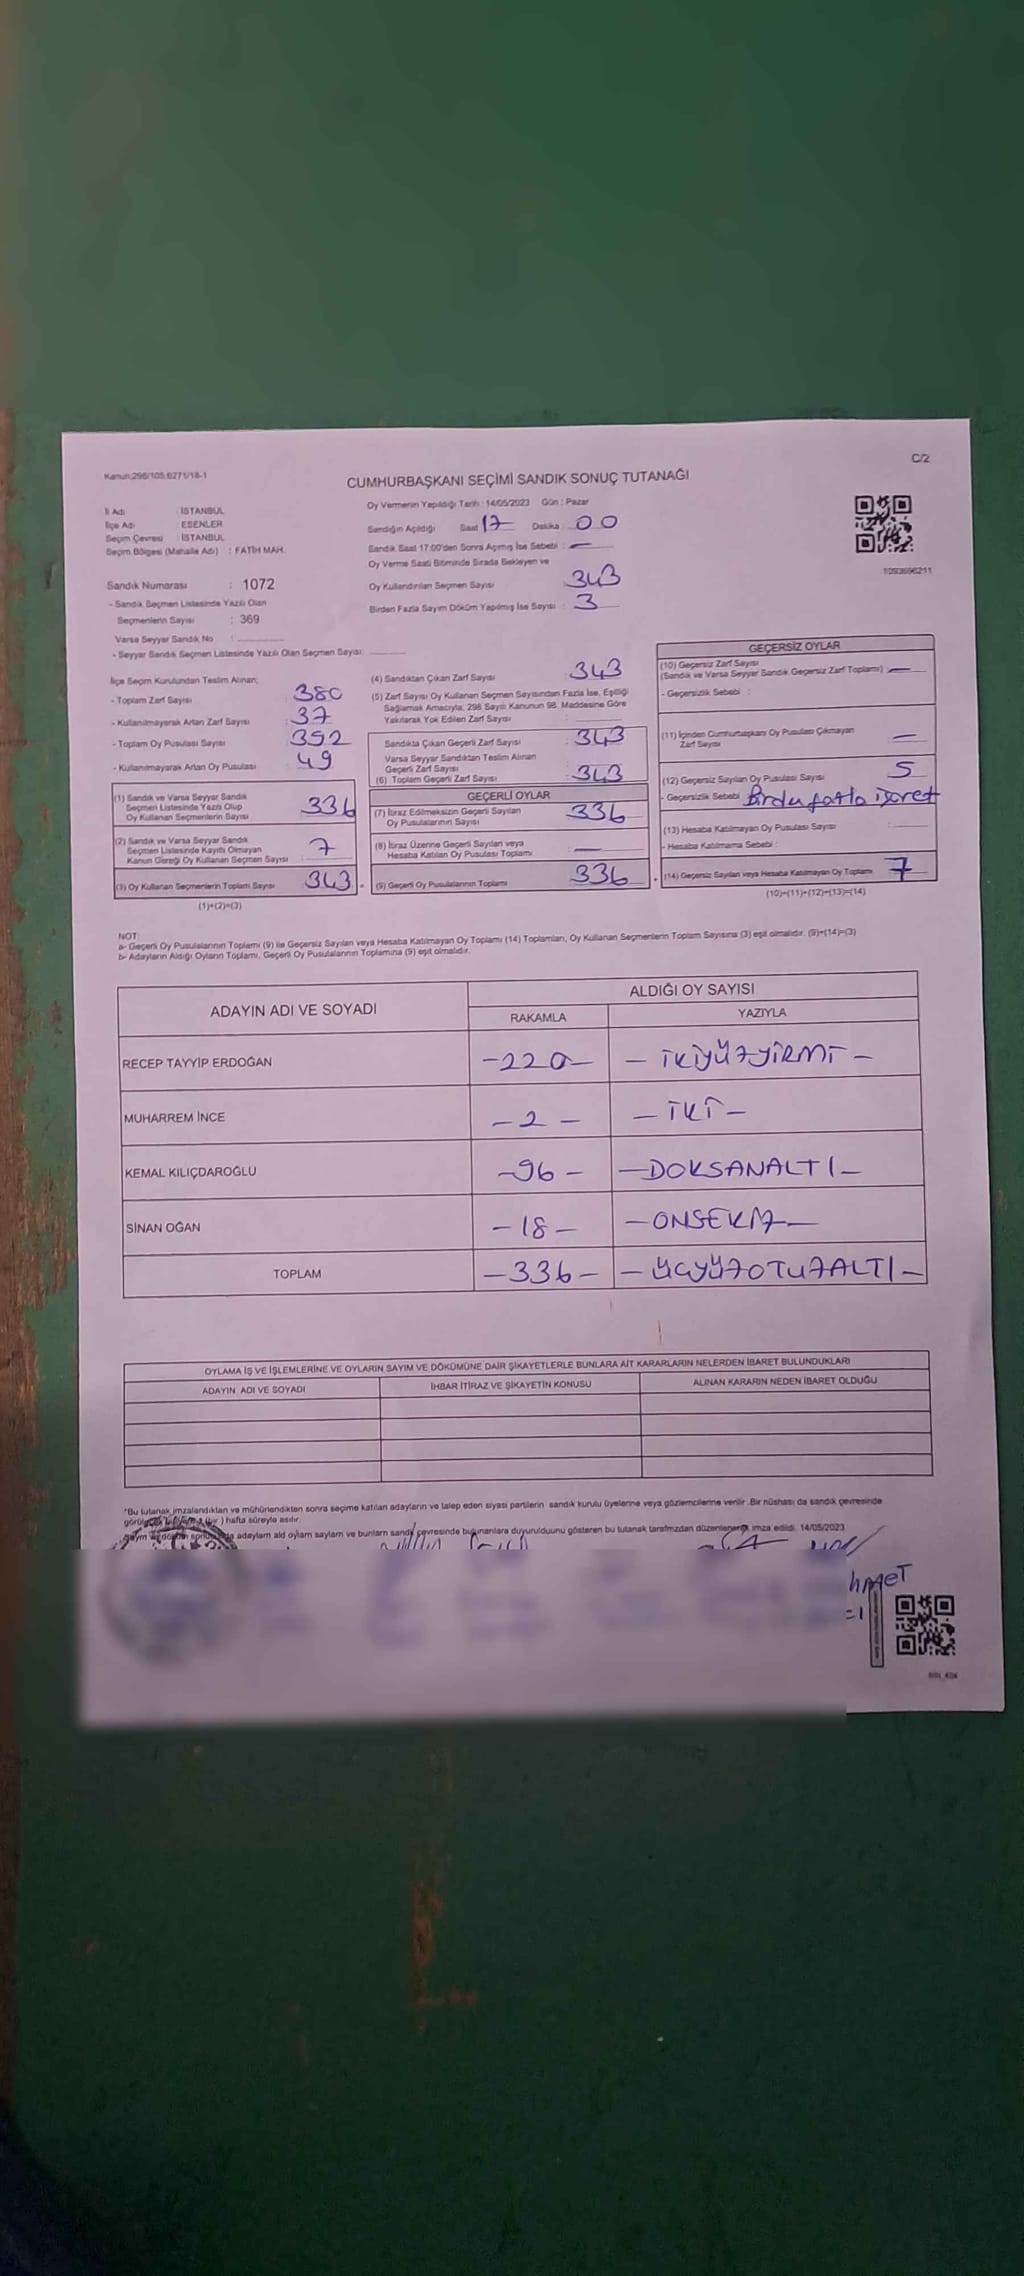 C/2
Kanun:298/105;6271/18-1
CUMHURBAŞKANI SEÇİMİ SANDIK SONUÇ TUTANAĞI
İl Adı : İSTANBUL
İlçe Adı : ESENLER
Seçim Çevresi : İSTANBUL
Seçim Bölgesi (Mahalle Adı) : FATİH MAH.
Oy Vermenin Yapıldığı Tarih : 14/05/2023 Gün : Pazar
Sandığın Açıldığı Saat 17 Dakika : 00
Sandık Saat 17:00'den Sonra Açılmış İse Sebebi : —
Oy Verme Saati Bitiminde Sırada Bekleyen ve
Oy Kullandırılan Seçmen Sayısı 343
Birden Fazla Sayım Döküm Yapılmış İse Sayısı : 3
1093696211
Sandık Numarası : 1072
- Sandık Seçmen Listesinde Yazılı Olan
Seçmenlerin Sayısı : 369
Varsa Seyyar Sandık No :
- Seyyar Sandık Seçmen Listesinde Yazılı Olan Seçmen Sayısı:
İlçe Seçim Kurulundan Teslim Alınan;
- Toplam Zarf Sayısı : 380
- Kullanılmayarak Artan Zarf Sayısı : 37
- Toplam Oy Pusulası Sayısı : 392
- Kullanılmayarak Artan Oy Pusulası : 49
(1) Sandık ve Varsa Seyyar Sandık
Seçmen Listesinde Yazılı Olup
Oy Kullanan Seçmenlerin Sayısı : 336
(2) Sandık ve Varsa Seyyar Sandık
Seçmen Listesinde Kayıtlı Olmayan
Kanun Gereği Oy Kullanan Seçmen Sayısı : 7
(3) Oy Kullanan Seçmenlerin Toplam Sayısı : 343
(1)+(2)=(3)
(4) Sandıktan Çıkan Zarf Sayısı : 343
(5) Zarf Sayısı Oy Kullanan Seçmen Sayısından Fazla İse, Eşitliği
Sağlamak Amacıyla, 298 Sayılı Kanunun 98. Maddesine Göre
Yakılarak Yok Edilen Zarf Sayısı :
Sandıkta Çıkan Geçerli Zarf Sayısı : 343
Varsa Seyyar Sandıktan Teslim Alınan
Geçerli Zarf Sayısı
(6) Toplam Geçerli Zarf Sayısı : 343
GEÇERLİ OYLAR
(7) İtiraz Edilmeksizin Geçerli Sayılan
Oy Pusulalarının Sayısı : 336
(8) İtiraz Üzerine Geçerli Sayılan veya
Hesaba Katılan Oy Pusulası Toplamı : —
(9) Geçerli Oy Pusulalarının Toplamı : 336
GEÇERSİZ OYLAR
(10) Geçersiz Zarf Sayısı
(Sandık ve Varsa Seyyar Sandık Geçersiz Zarf Toplamı) : —
- Geçersizlik Sebebi :
(11) İçinden Cumhurbaşkanı Oy Pusulası Çıkmayan
Zarf Sayısı : —
(12) Geçersiz Sayılan Oy Pusulası Sayısı : 5
- Geçersizlik Sebebi Birdu fatla işaret
(13) Hesaba Katılmayan Oy Pusulası Sayısı :
- Hesaba Katılmama Sebebi :
(14) Geçersiz Sayılan veya Hesaba Katılmayan Oy Toplamı : 7
(10)+(11)+(12)+(13)=(14)
NOT:
a- Geçerli Oy Pusulalarının Toplamı (9) ile Geçersiz Sayılan veya Hesaba Katılmayan Oy Toplamı (14) Toplamları, Oy Kullanan Seçmenlerin Toplam Sayısına (3) eşit olmalıdır. (9)+(14)=(3)
b- Adayların Aldığı Oyların Toplamı, Geçerli Oy Pusulalarının Toplamına (9) eşit olmalıdır.
ADAYIN ADI VE SOYADI ALDIĞI OY SAYISI
RAKAMLA YAZIYLA
RECEP TAYYİP ERDOĞAN -220- - İKİYÜZYİRMİ -
MUHARREM İNCE -2- - İKİ -
KEMAL KILIÇDAROĞLU -96- - DOKSANALTI -
SİNAN OĞAN -18- - ONSEKİZ -
TOPLAM -336- - ÜÇYÜZOTUZALTI -
OYLAMA İŞ VE İŞLEMLERİNE VE OYLARIN SAYIM VE DÖKÜMÜNE DAİR ŞİKAYETLERLE BUNLARA AİT KARARLARIN NELERDEN İBARET BULUNDUKLARI
ADAYIN ADI VE SOYADI İHBAR İTİRAZ VE ŞİKAYETİN KONUSU ALINAN KARARIN NEDEN İBARET OLDUĞU
*Bu tutanak imzalandıktan ve mühürlendikten sonra seçime katılan adayların ve talep eden siyasi partilerin sandık kurulu üyelerine veya gözlemcilerine verilir. Bir nüshası da sandık çevresinde
hafta süreyle asılır.
adayların ald oyların sayların ve bunların sandık çevresinde bulunanlara duyurulduunu gösteren bu tutanak tarafmzdan düzenlenerek imza edildi. 14/05/2023